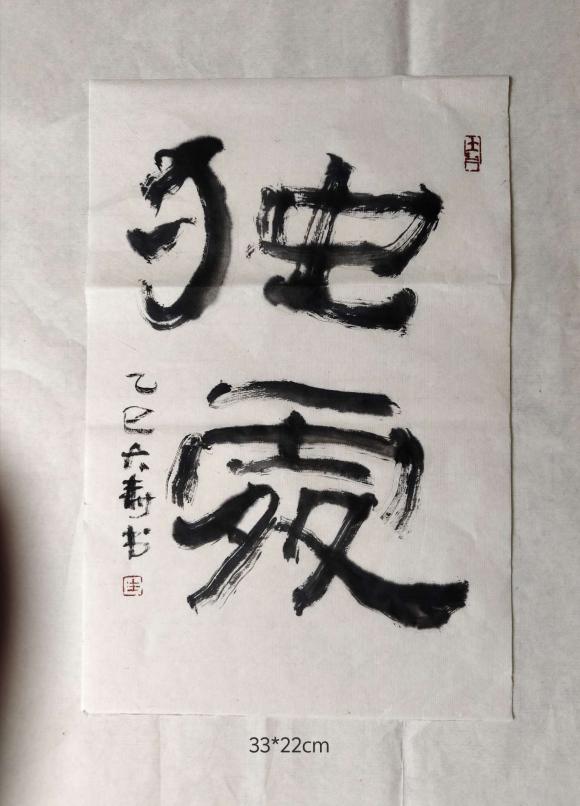 独處
乙巳 寿书
33*22cm